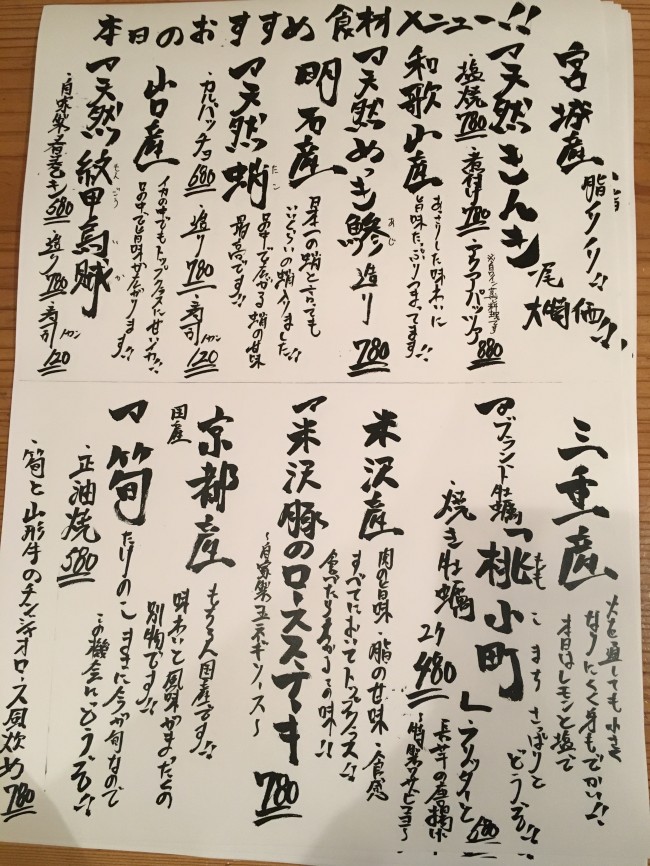 本日のおすすめ食材メニュー!!
宮城産 脂ノリノリ!!
マ天然きんき 一尾 大特価!!
・塩焼780・煮付け780・アクアパッツァ880
和歌山産 あっさりした味わいに
旨味たっぷりつまってます!!
マ天然めっき鯵 造り780
あじ
明石産 日本一の蛸と言っても
いいくらいの蛸入りました!!
マ天然蛸 口の中で広がる蛸の甘味
タコ
最高です!!
・カルパッチョ680・造り780・寿司120
山口産 イカの中でもトップクラスに甘いイカ!!
口の中で旨味が広がります!!
マ天然紋甲烏賊
もんごういか
・自家製香巻キ580・造り780・寿司120
三重産 火を通しても小さく
なりにくく身もでかい!!
本日はレモンと塩で
さっぱりと
どうぞ!!
マブランド牡蠣「桃小町」
ももこまち
・焼き牡蠣 2ケ480
・フリッターと
長芋の唐揚げ 680
米沢産 肉の旨味・脂の甘味・食感
すべてにおいてトップクラス!!
食べたらわかるこの味!!
マ米沢豚のロースステーキ
780
京都産 もちろん国産です!!
国産
味わいと風味がまったくの
別物です!!
マ筍 たけのこ まさに今が旬なので
この機会にどうぞ!!
・正油焼580
・筍と山形牛のチンジャオロース風炒め780